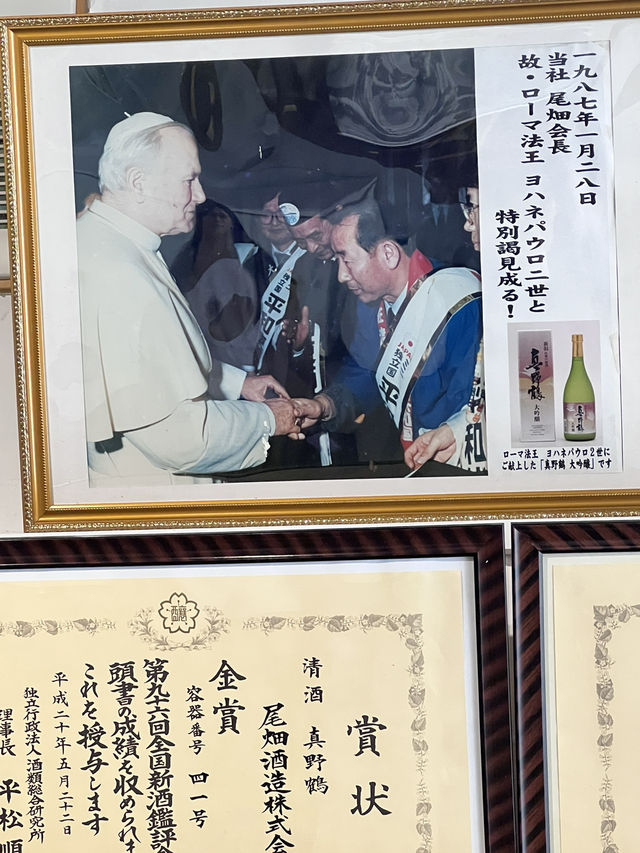 一九八七年一月二八日
当社 尾畑会長
故・ローマ法王 ヨハネパウロ二世と
特別謁見成る!
独立国 平和
JAPAN
独立国 平
和
真野鶴
大吟醸
真野鶴
ローマ法王 ヨハネパウロ2世に
ご献上した「真野鶴 大吟醸」です
醸
賞状
清酒 真野鶴
尾畑酒造株式会
金賞
容器番号 四一号
第九十六回全国新酒鑑評会
頭書の成績を収められま
これを授与します
平成二十年五月二十二日
独立行政法人酒類総合研究所
理事長 平松順